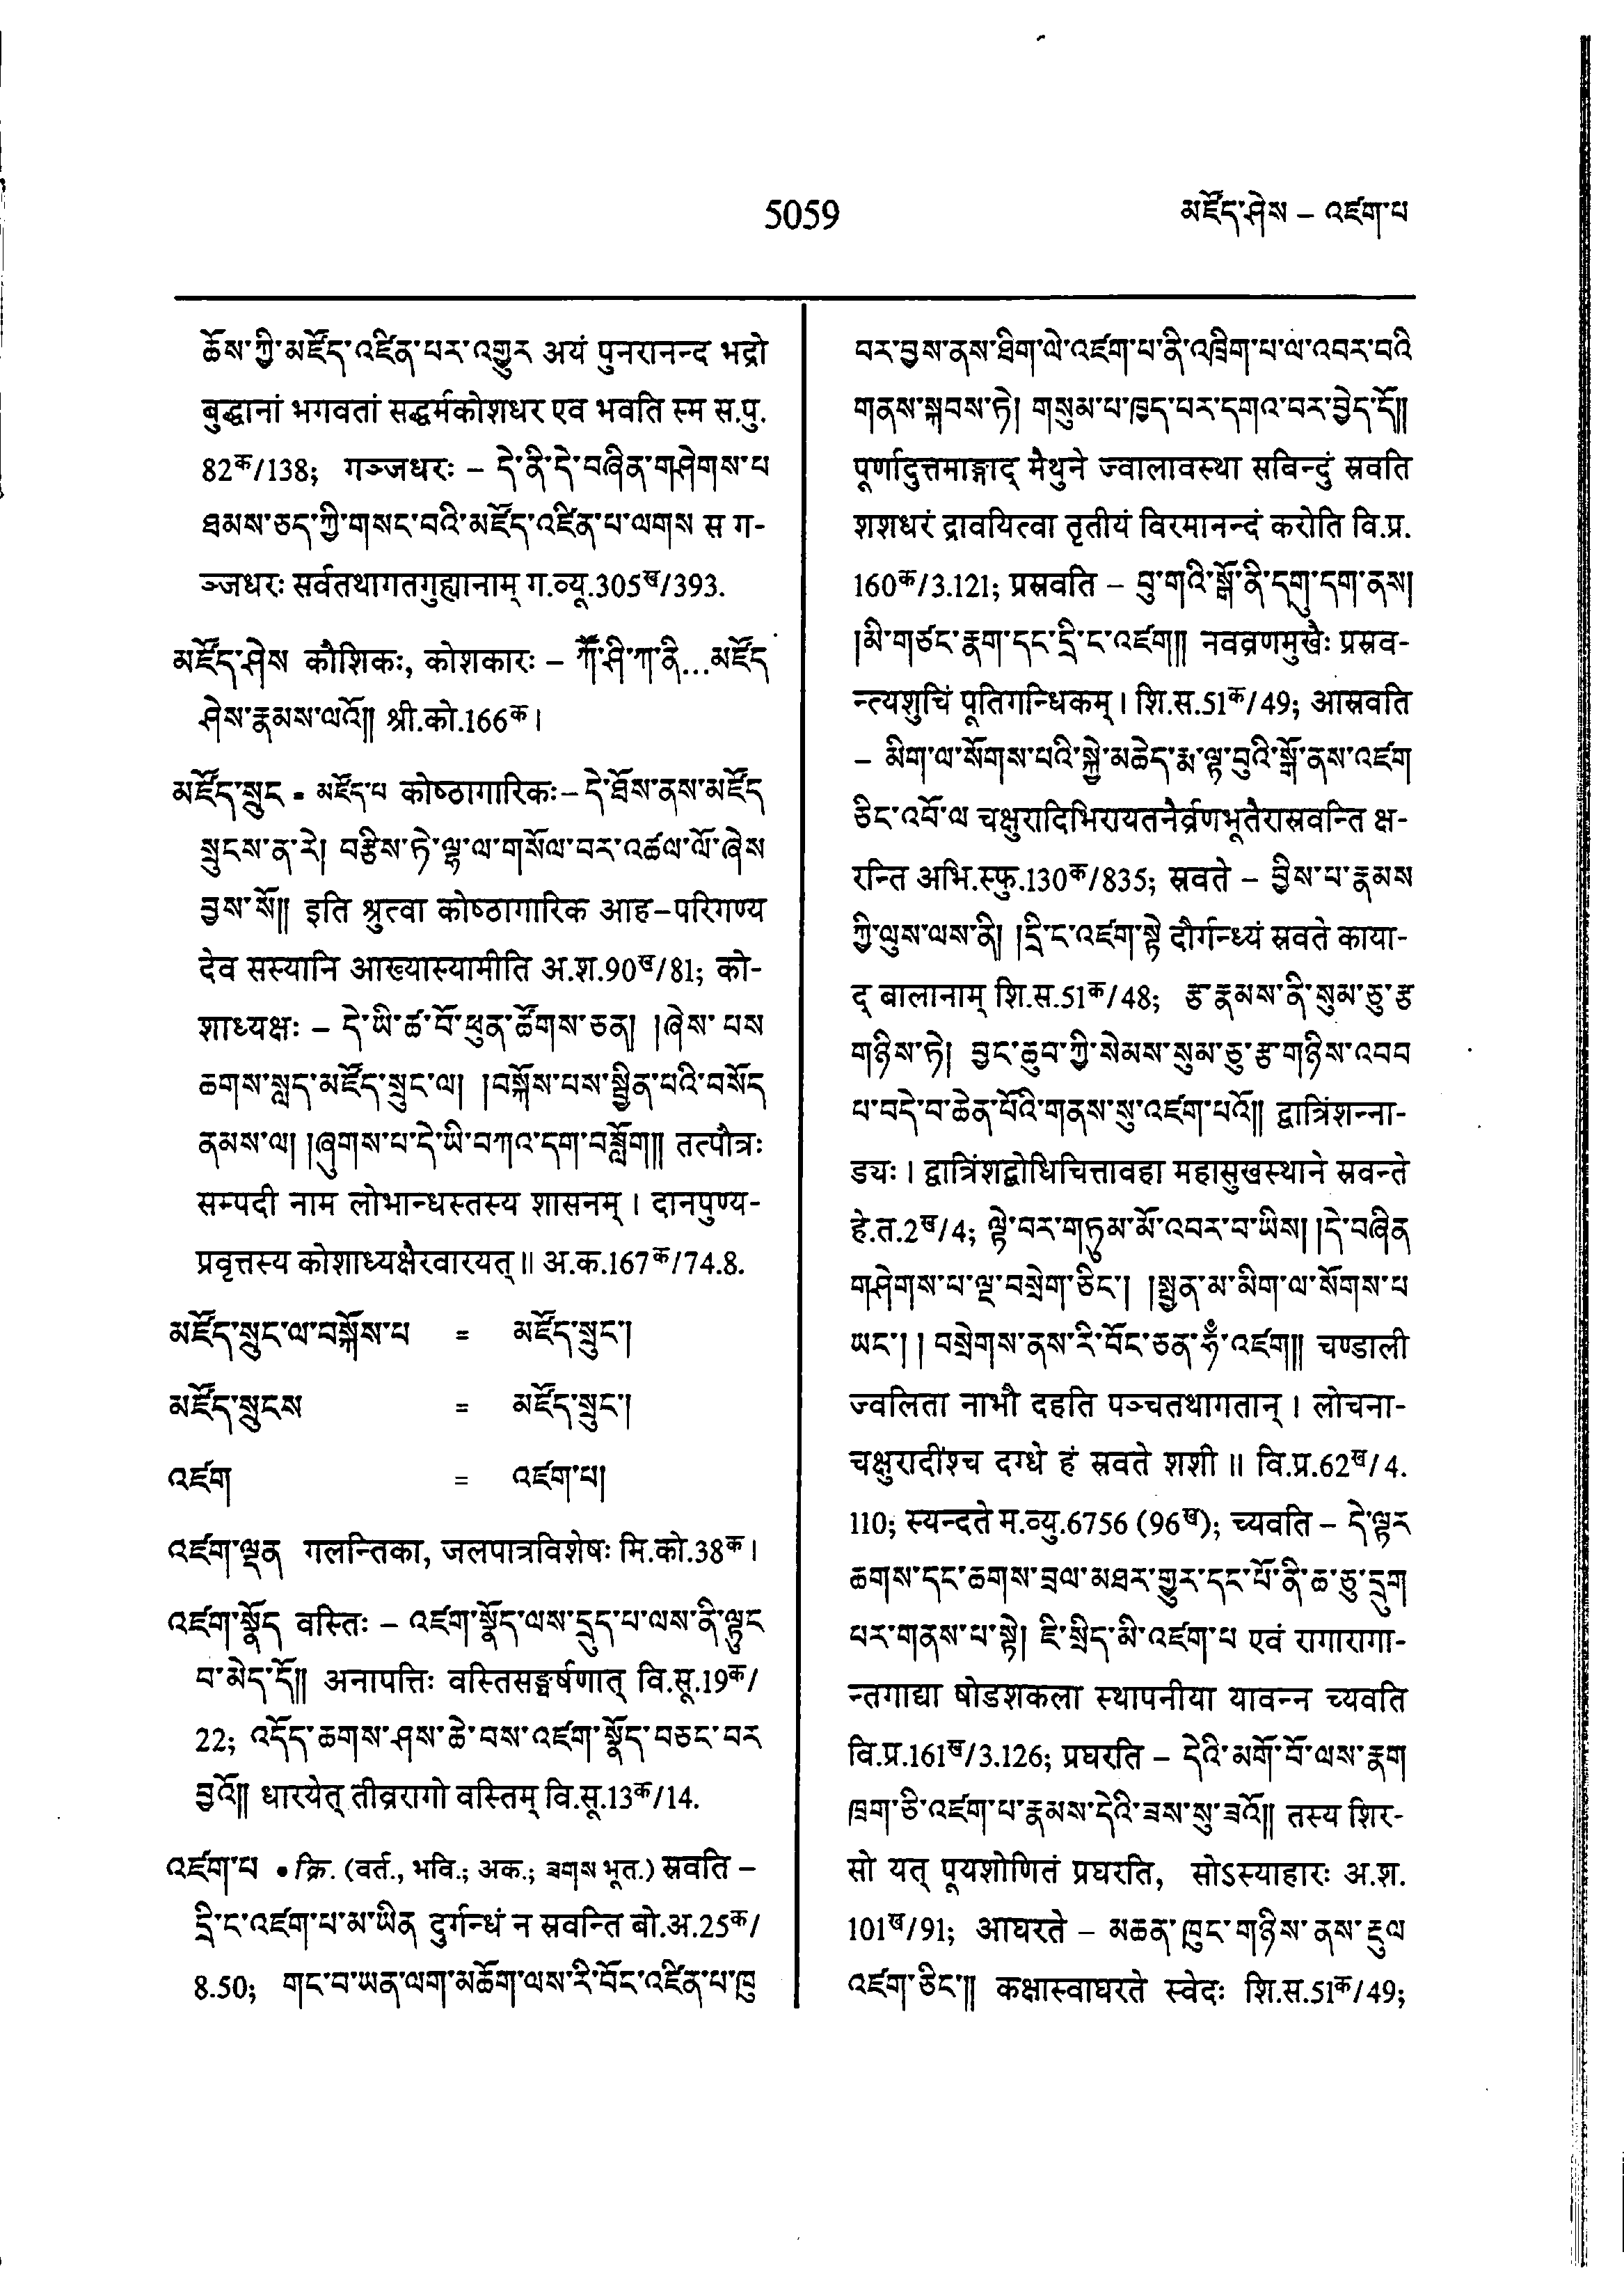 5059
མཛོད་ཤེས – འཛག་པ
ཆོས་ཀྱི་མཛོད་འཛིན་པར་འགྱུར अयं पुनरानन्द भद्रो
बुद्धानां भगवतां सद्धर्मकोशधर एव भवति स्म स.पु.
82क/138; गञ्जधरः – དེ་ནི་དེ་བཞིན་གཤེགས་པ
ཐམས་ཅད་ཀྱི་གསང་བའི་མཛོད་འཛིན་པ་ལགས स ग-
ञ्जधरः सर्वतथागतगुह्यानाम् ग.व्यू.305ख/393.
མཛོད་ཤེས कौशिकः, कोशकारः – ཀཽ་ཤི་ཀ་ནི...མཛོད
ཤེས་རྣམས་ལའོ༎ श्री.को.166क।
མཛོད་སྲུང = མཛོད་པ कोष्ठागारिकः– དེ་ཐོས་ནས་མཛོད
སྲུངས་ན་རེ། བརྩིས་ཏེ་ལྷ་ལ་གསོལ་བར་འཚལ་ལོ་ཞེས
བྱས་སོ༎ इति श्रुत्वा कोष्ठागारिक आह–परिगण्य
देव सस्यानि आख्यास्यामीति अ.श.90ख/81; को-
शाध्यक्षः – དེ་ཡི་ཚ་བོ་ཕུན་ཚོགས་ཅན། །ཞེས་པས
ཆགས་སླད་མཛོད་སྲུང་ལ། །བསྐོས་པས་སྦྱིན་པའི་བསོད
ནམས་ལ། །ཞུགས་པ་དེ་ཡི་བཀའ་དག་བཟློག༎ तत्पौत्रः
सम्पदी नाम लोभान्धस्तस्य शासनम्। दानपुण्य-
प्रवृत्तस्य कोशाध्यक्षैरवारयत्॥ अ.क.167क/74.8.
མཛོད་སྲུང་ལ་བསྐོས་པ = མཛོད་སྲུང་།
མཛོད་སྲུངས = མཛོད་སྲུང་།
འཛག = འཛག་པ།
འཛག་ལྡན गलन्तिका, जलपात्रविशेषः मि.को.38क।
འཛག་སྣོད वस्तिः – འཛག་སྣོད་ལས་དྲུད་པ་ལས་ནི་ལྟུང
བ་མེད་དོ༎ अनापत्तिः वस्तिसङ्घर्षणात् वि.सू.19क/
22; འདོད་ཆགས་ཤས་ཆེ་བས་འཛག་སྣོད་བཅང་བར
བྱའོ༎ धारयेत् तीव्ररागो वस्तिम् वि.सू.13क/14.
འཛག་པ • क्रि. (वर्त., भवि.; अक.; ཟགས भूत.) स्रवति –
དྲི་ང་འཛག་པ་མ་ཡིན दुर्गन्धं न स्रवन्ति बो.अ.25क/
8.50; གང་བ་ཡན་ལག་མཆོག་ལས་རི་བོང་འཛིན་པ་ཁུ
བར་བྱས་ནས་ཐིག་ལེ་འཛག་པ་ནི་འཁྲིག་པ་ལ་འབར་བའི
གནས་སྐབས་ཏེ། གསུམ་པ་ཁྱད་པར་དགའ་བར་བྱེད་དོ༎
पूर्णादुत्तमाङ्गाद् मैथुने ज्वालावस्था सविन्दुं स्रवति
शशधरं द्रावयित्वा तृतीयं विरमानन्दं करोति वि.प्र.
160क/3.121; प्रस्रवति – བུ་གའི་སྒོ་ནི་དགུ་དག་ནས།
།མི་གཙང་རྣག་དང་དྲི་ང་འཛག༎ नवव्रणमुखैः प्रस्रव-
न्त्यशुचिं पूतिगन्धिकम्। शि.स.51क/49; आस्रवति
– མིག་ལ་སོགས་པའི་སྐྱེ་མཆེད་རྨ་ལྟ་བུའི་སྒོ་ནས་འཛག
ཅིང་འབོ་ལ चक्षुरादिभिरायतनैर्व्रणभूतैरास्रवन्ति क्ष-
रन्ति अभि.स्फु.130क/835; स्रवते – བྱིས་པ་རྣམས
ཀྱི་ལུས་ལས་ནི། །དྲི་ང་འཛག་སྟེ दौर्गन्ध्यं स्रवते काया-
द् बालानाम् शि.स.51क/48; རྩ་རྣམས་ནི་སུམ་ཅུ་རྩ
གཉིས་ཏེ། བྱང་ཆུབ་ཀྱི་སེམས་སུམ་ཅུ་རྩ་གཉིས་འབབ
པ་བདེ་བ་ཆེན་པོའི་གནས་སུ་འཛག་པའོ༎ द्वात्रिंशन्ना-
ड्यः। द्वात्रिंशद्बोधिचित्तावहा महासुखस्थाने स्रवन्ते
हे.त.2ख/4; ལྟེ་བར་གཏུམ་མོ་འབར་བ་ཡིས། །དེ་བཞིན
གཤེགས་པ་ལྔ་བསྲེག་ཅིང་། །སྤྱན་མ་མིག་ལ་སོགས་པ
ཡང་། །བསྲེགས་ནས་རི་བོང་ཅན་ཧཾ་འཛག༎ चण्डाली
ज्वलिता नाभौ दहति पञ्चतथागतान्। लोचना-
चक्षुरादींश्च दग्धे हं स्रवते शशी॥ वि.प्र.62ख/4.
110; स्यन्दते म.व्यु.6756 (96ख); च्यवति – དེ་ལྟར
ཆགས་དང་ཆགས་བྲལ་མཐར་གྱུར་དང་པོ་ནི་ཆ་ཅུ་དྲུག
པར་གནས་པ་སྟེ། ཇི་སྲིད་མི་འཛག་པ एवं रागारागा-
न्तगाद्या षोडशकला स्थापनीया यावन्न च्यवति
वि.प्र.161ख/3.126; प्रघरति – དེའི་མགོ་བོ་ལས་རྣག
ཁྲག་ཅི་འཛག་པ་རྣམས་དེའི་ཟས་སུ་ཟའོ༎ तस्य शिर-
सो यत् पूयशोणितं प्रघरति, सोऽस्याहारः अ.श.
101ख/91; आघरते – མཆན་ཁུང་གཉིས་ནས་རྡུལ
འཛག་ཅིང་༎ कक्षास्वाघरते स्वेदः शि.स.51क/49;